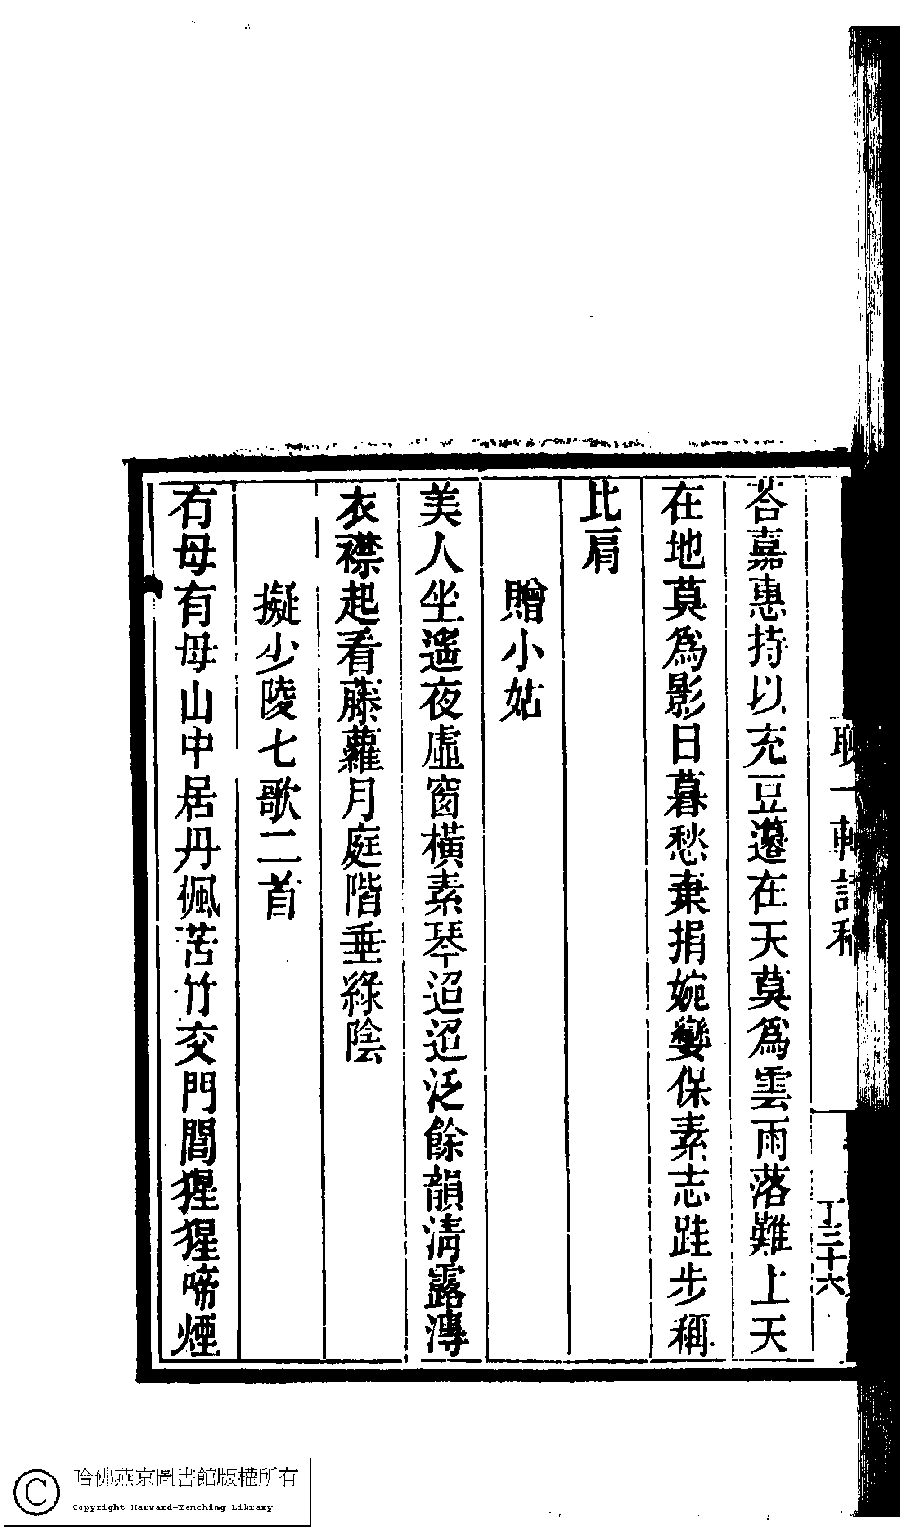 荅嘉惠持以充豆籩在天莫爲雲雨落難上天
在地莫爲影日暮愁棄捐婉孌保素志跬步稱
比肩
贈小姑
美人坐遙夜虛窗橫素琴迢迢泛餘韻淸露漙
衣襟起看藤蘿月庭階垂綠陰
擬少陵七歌二首
有母有母山中居丹楓苦竹交門閭猩猩啼煙
丁三十六
哈佛燕京圖書館版權所有
Copyright Harvard-Yenching Library